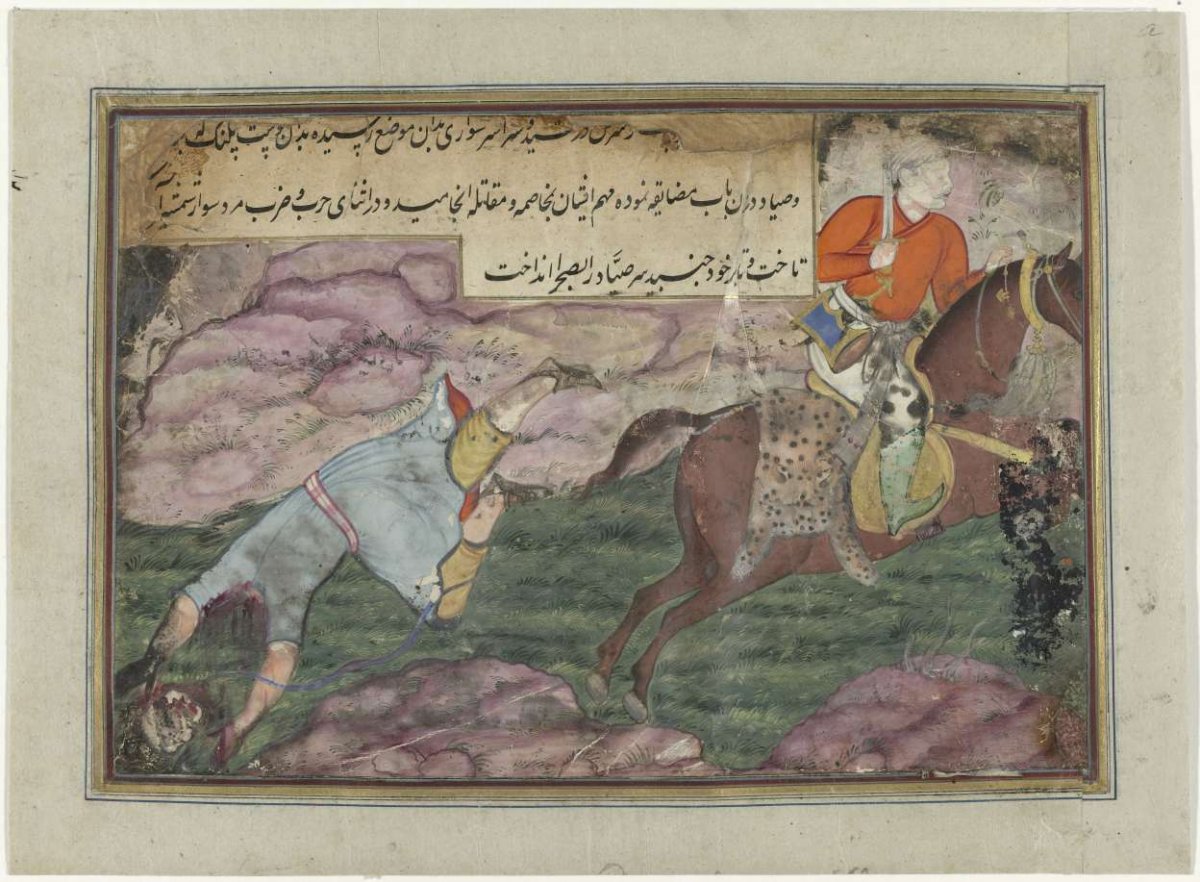 در سید و سراسر سواری بدان موضع رسیده بدان پوست پلنک
و صیاد در ان باب مضایقه نموده مهم ایشان بمخاصمه و مقاتله انجامید و در اثنای حرب و ضرب مرد سوار
تاخت و تبار خود جنبید سر صیاد را بصحرا انداخت